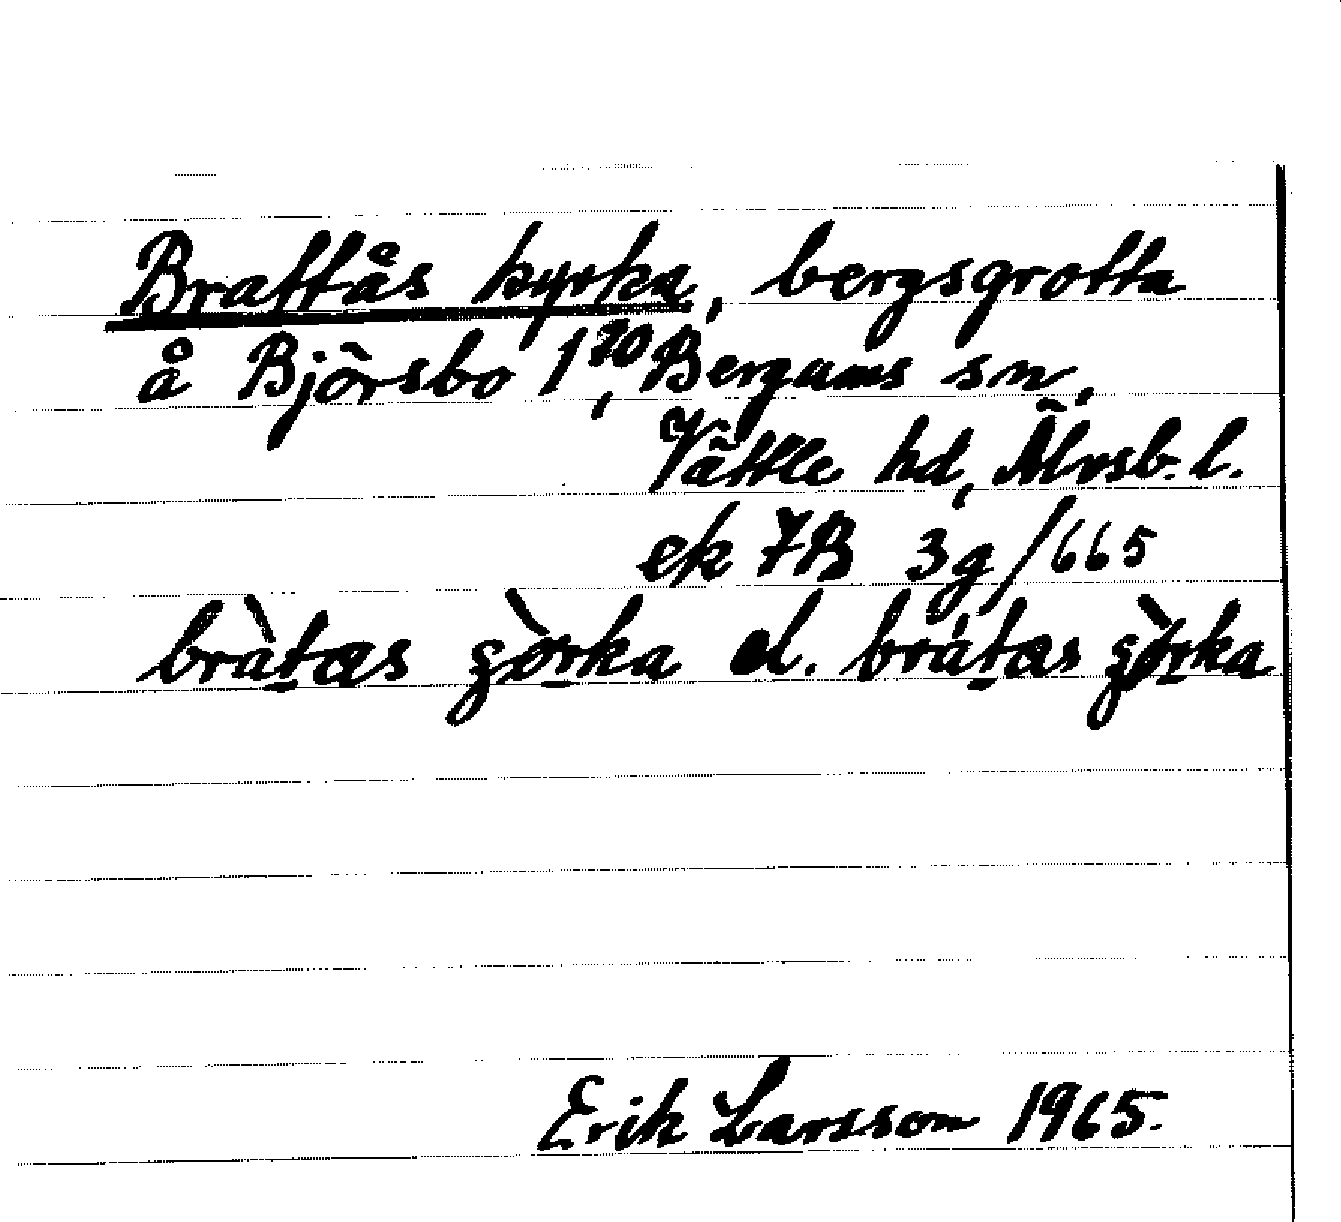 Brattås kyrka, bergsgrotta
å Björsbo 1²⁰, Bergums sn,
Vättle hd, Älvsb. l.
ek 7B 3g/665
bràt̠æs ʒòr̠ka el. brát̠æs ʒòr̠ka
Erik Larsson 1965.